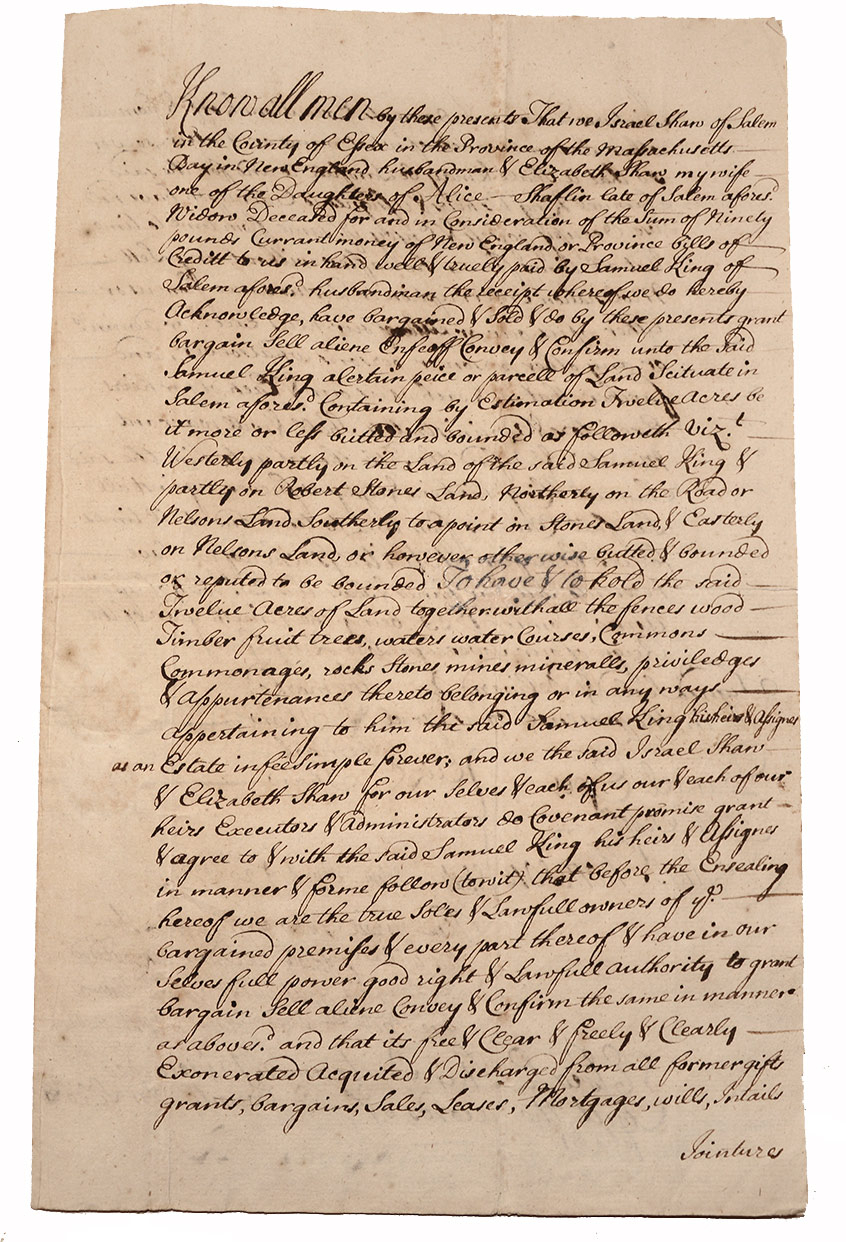 Know all men by these presents That we Israel Shaw of Salem
in the County of Essex in the Province of the Massachusetts
Bay in New England husbandman & Elizabeth Shaw my wife
one of the Daughters of Alice Shaflin late of Salem afores.d
Widow Deceased for and in Consideration of the Sum of Ninety
pounds Currant money of New England or Province bills of
Creditt to us in hand well & truely paid by Samuel King of
Salem afores.d husbandman the receipt whereof we do hereby
Acknowledge, have bargained & Sold & do by these presents grant
bargain Sell aliene Enfeoff Convey & Confirm unto the Said
Samuel King a certain peice or parcell of Land Scituate in
Salem afores.d Containing by Estimation Twelve Acres be
it more or less butted and bounded as followeth Viz.t
Westerly partly on the Land of the said Samuel King &
partly on Robert Stones Land, Northerly on the Road or
Nelsons Land Southerly to a point in Stones Land, & Easterly
on Nelsons Land, or however otherwise butted & bounded
or reputed to be bounded To have & to hold the said
Twelve Acres of Land together with all the fences wood
Timber fruit trees, waters water Courses, Commons
Commonages, rocks Stones mines mineralls, priviledges
& Appurtenances thereto belonging or in any ways
appertaining to him the said Samuel King his heirs & Assignes
as an Estate in fee Simple forever; and we the said Israel Shaw
& Elizabeth Shaw for our Selves & each of us our & each of our
heirs Executors & Administrators do Covenant promise grant
& agree to & with the said Samuel King his heirs & Assignes
in manner & forme follow (to wit) that before the Ensealing
hereof we are the true Soles & Lawfull owners of ye
bargained premises & every part thereof & have in our
Selves full power good right & Lawfull authority to grant
bargain Sell aliene Convey & Confirm the same in manner
as aboves.d and that its free & Clear & freely & Clearly
Exonerated Acquited & Discharged from all former gifts
grants, bargains, Sales, Leases, Mortgages, wills, Intails
Jointures